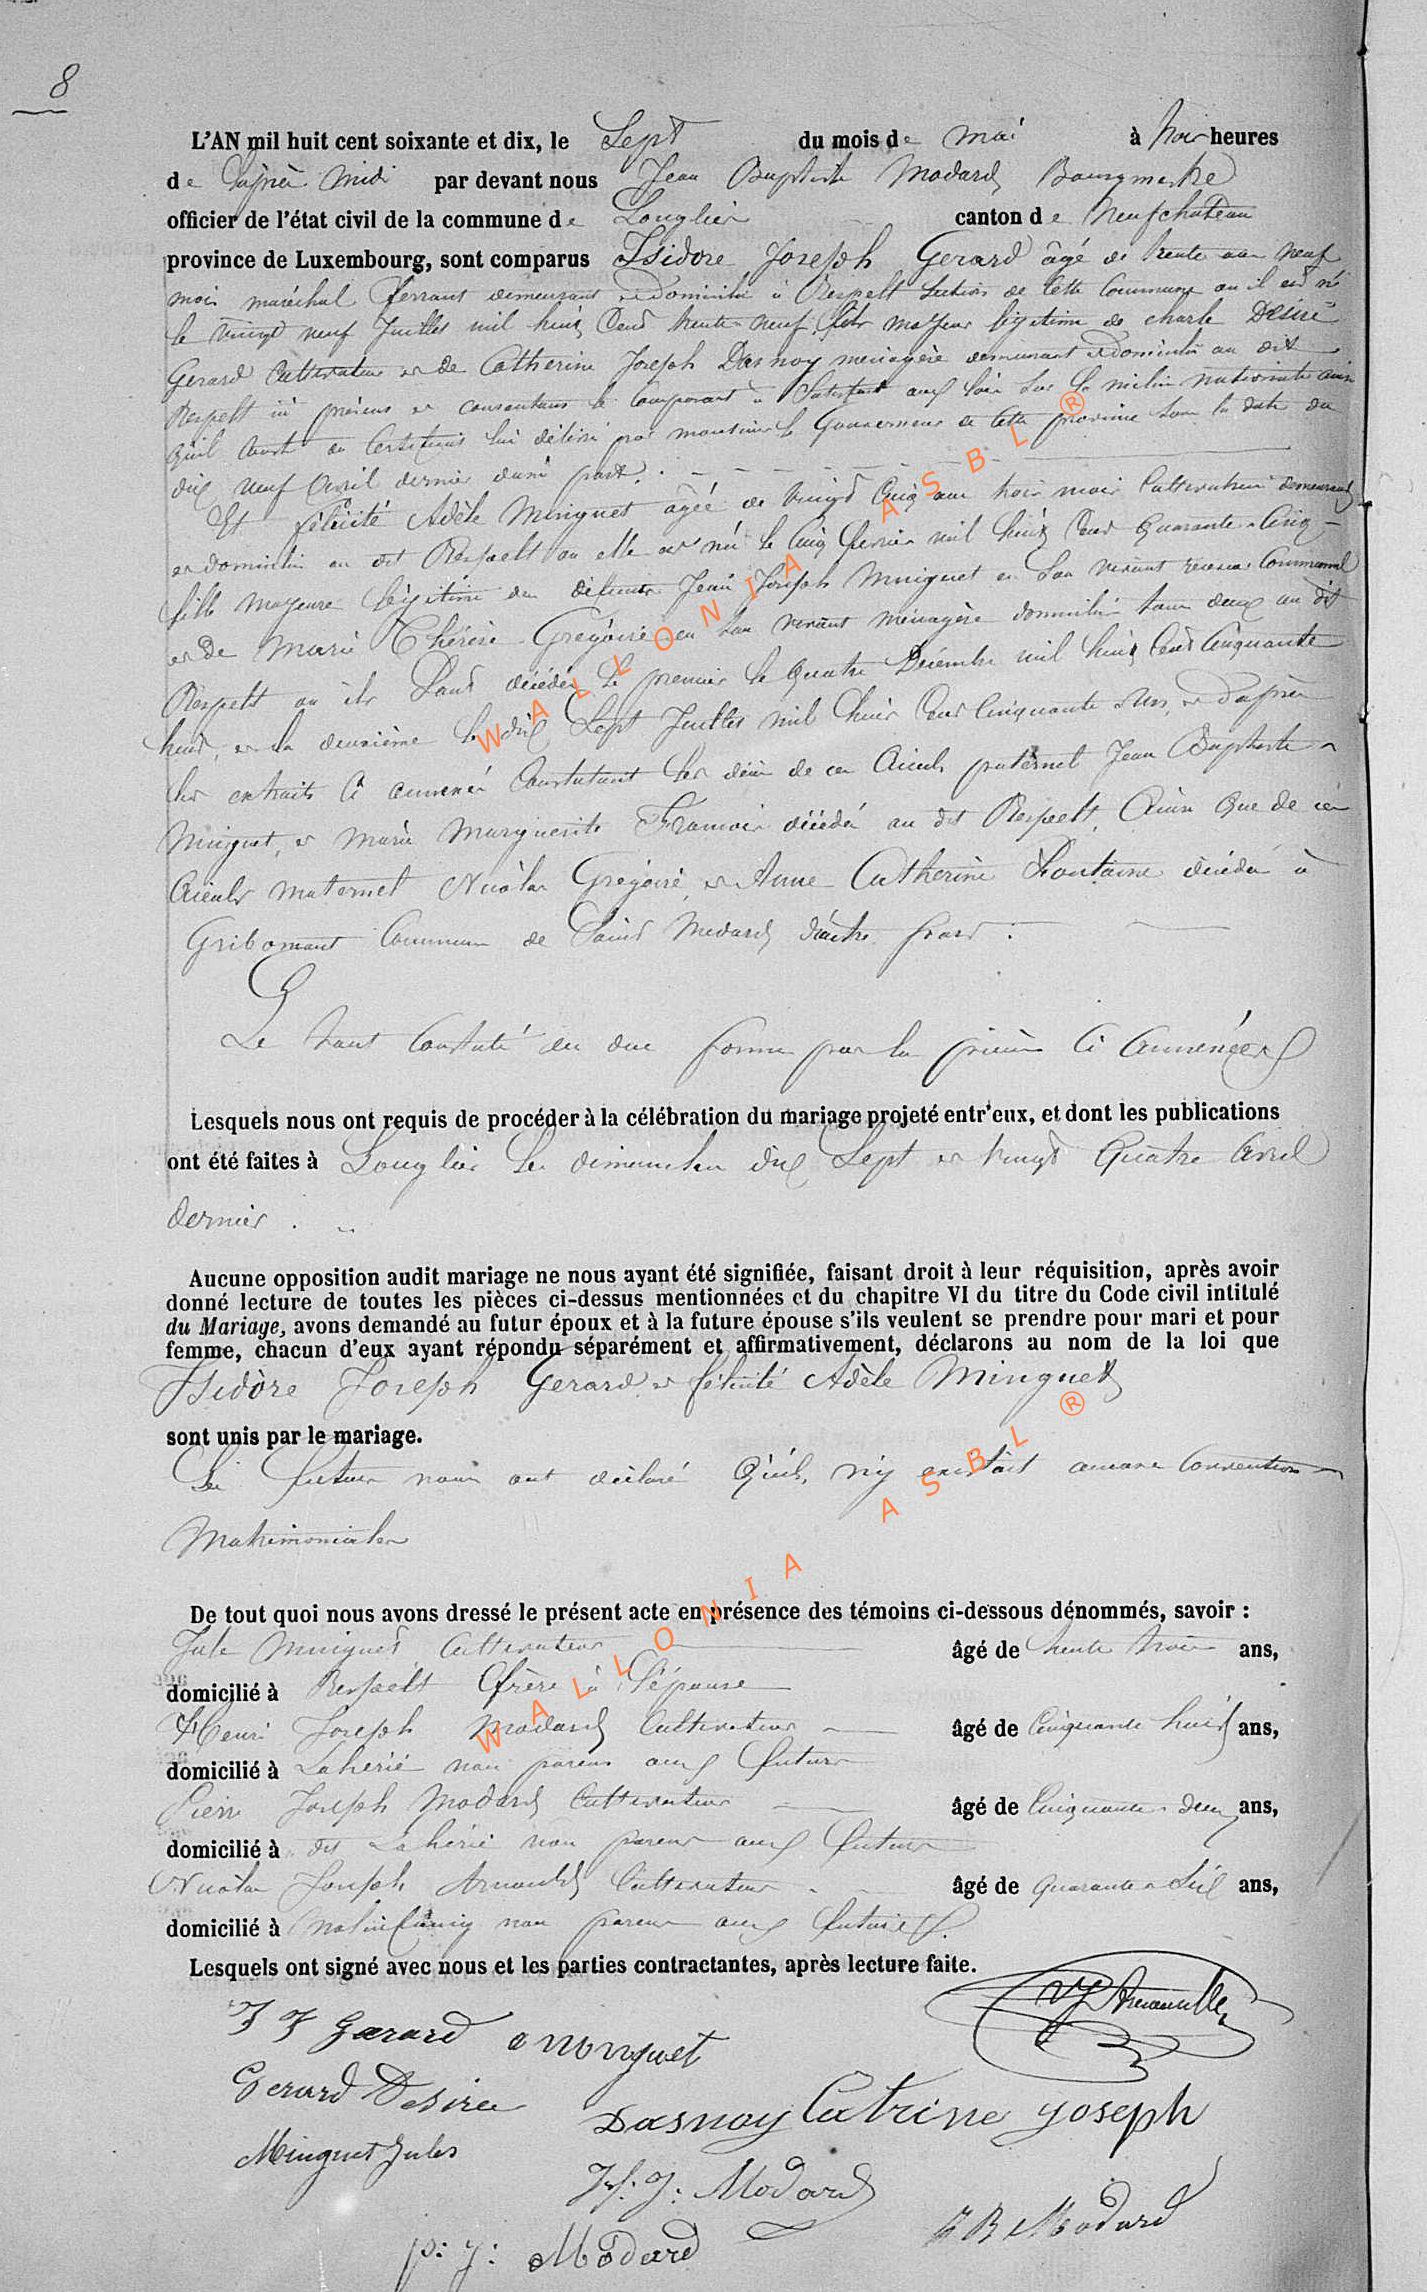 8
L'AN mil huit cent soixante et dix, le Sept du mois de mai à trois heures
de l'après midi par devant nous Jean Baptiste Modard Bourgmestre
officier de l'état civil de la commune de Longlier canton de Neufchateau
province de Luxembourg, sont comparus Isidore Joseph Gerard âgé de trente ans neuf
mois maréchal ferrant demeurant et domicilié à Respelt Section de cette Commune ou il est né
le vingt neuf Juillet mil huit Cent trente neuf, fils majeur légitime de charle Désiré
Gerard Cultivateur et de Catherine Joseph Dasnoy menagère demeurant et domicilié au dit
Respelt ici présens et consentans le Comparant a Satisfait aux lois sur la milice nationale ainsi
qu'il Conste du Certificat lui délivré par monsieur le Gouverneur de cette province sous la date du
dix neuf avril dernier d'une part.
Et félicité Adèle Minguet agée de vingt Cinq ans trois mois Cultivatrice demeurant
et domicilié au dit Respelt ou elle est né le Cinq février mil huit Cent quarante Cinq
fille majeure légitime du défunt Jean Joseph Minguet en Son vivant receveur Communal
et de Marie Thérèse Grégoire en Son vivant ménagère domicilié tous deux au dit
Respelt ou ils Sont décédés le premier le quatre Décembre mil huit Cent Cinquante
huit, et la deuxième le dix Sept Juillet mil huit Cent Cinquante et d'après
les extraits Ci annexés Constatant les décès de ces Aieuls paternel Jean Baptiste
Minguet, et Marie Marguerite décédé au dit Respelt, Ainsi que de ces
Aieuls maternel Nicolas Grégoire et Anne Catherine Fontaine décédés à
Gribomont Commune de Saint Medard d'autre part.
Le tout Constaté en due forme par les pièces Ci Annexées
Lesquels nous ont requis de procéder à la célébration du mariage projeté entr'eux, et dont les publications
ont été faites à Longlier les dimanches dix Sept et vingt Quatre avril
dernier.
Aucune opposition audit mariage ne nous ayant été signifiée, faisant droit à leur réquisition, après avoir
donné lecture de toutes les pièces ci-dessus mentionnées et du chapitre VI du titre du Code civil intitulé
du Mariage, avons demandé au futur époux et à la future épouse s'ils veulent se prendre pour mari et pour
femme, chacun d'eux ayant répondu séparément et affirmativement, déclarons au nom de la loi que
Isidore Joseph Gerard et félicité Adèle Minguet
sont unis par le mariage.
Les futurs nous ont déclaré Qu'ils n'y existait aucune Convention
Matrimoniales
De tout quoi nous avons dressé le présent acte en présence des témoins ci-dessous dénommés, savoir :
Jule Minguet Cultivateur âgé de trente trois ans,
domicilié à Respelt frère à l'épouse
Henri Joseph Modard Cultivateur âgé de Cinquante huit ans,
domicilié à Laherié non parent aux futurs
Pierre Joseph Modard Cultivateur âgé de Cinquante deux ans,
domicilié à dit Laherié non parent aux futurs
Nicolas Joseph Arnould Cultivateur âgé de quarante Six ans,
domicilié à Molinfaing non parent aux futurs.
Lesquels ont signé avec nous et les parties contractantes, après lecture faite.
NJ Arnould
I J Gerard a minguet
Gerard Desiree
Dasnoy Catrine joseph
Minguet Jules
H: J: Modard
J B Modard
p: j: Modard
WALLONIA ASBL ®
WALLONIA ASBL ®